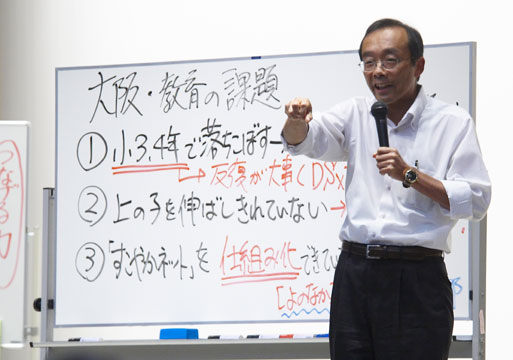 大阪・教育の課題
① 小3,4年で落ちこぼす
→ 反復が大事(DS
② 上の子を伸ばしきれていない→
③「すこやかネット」を仕組み化できてい
[よのなか
つながる力